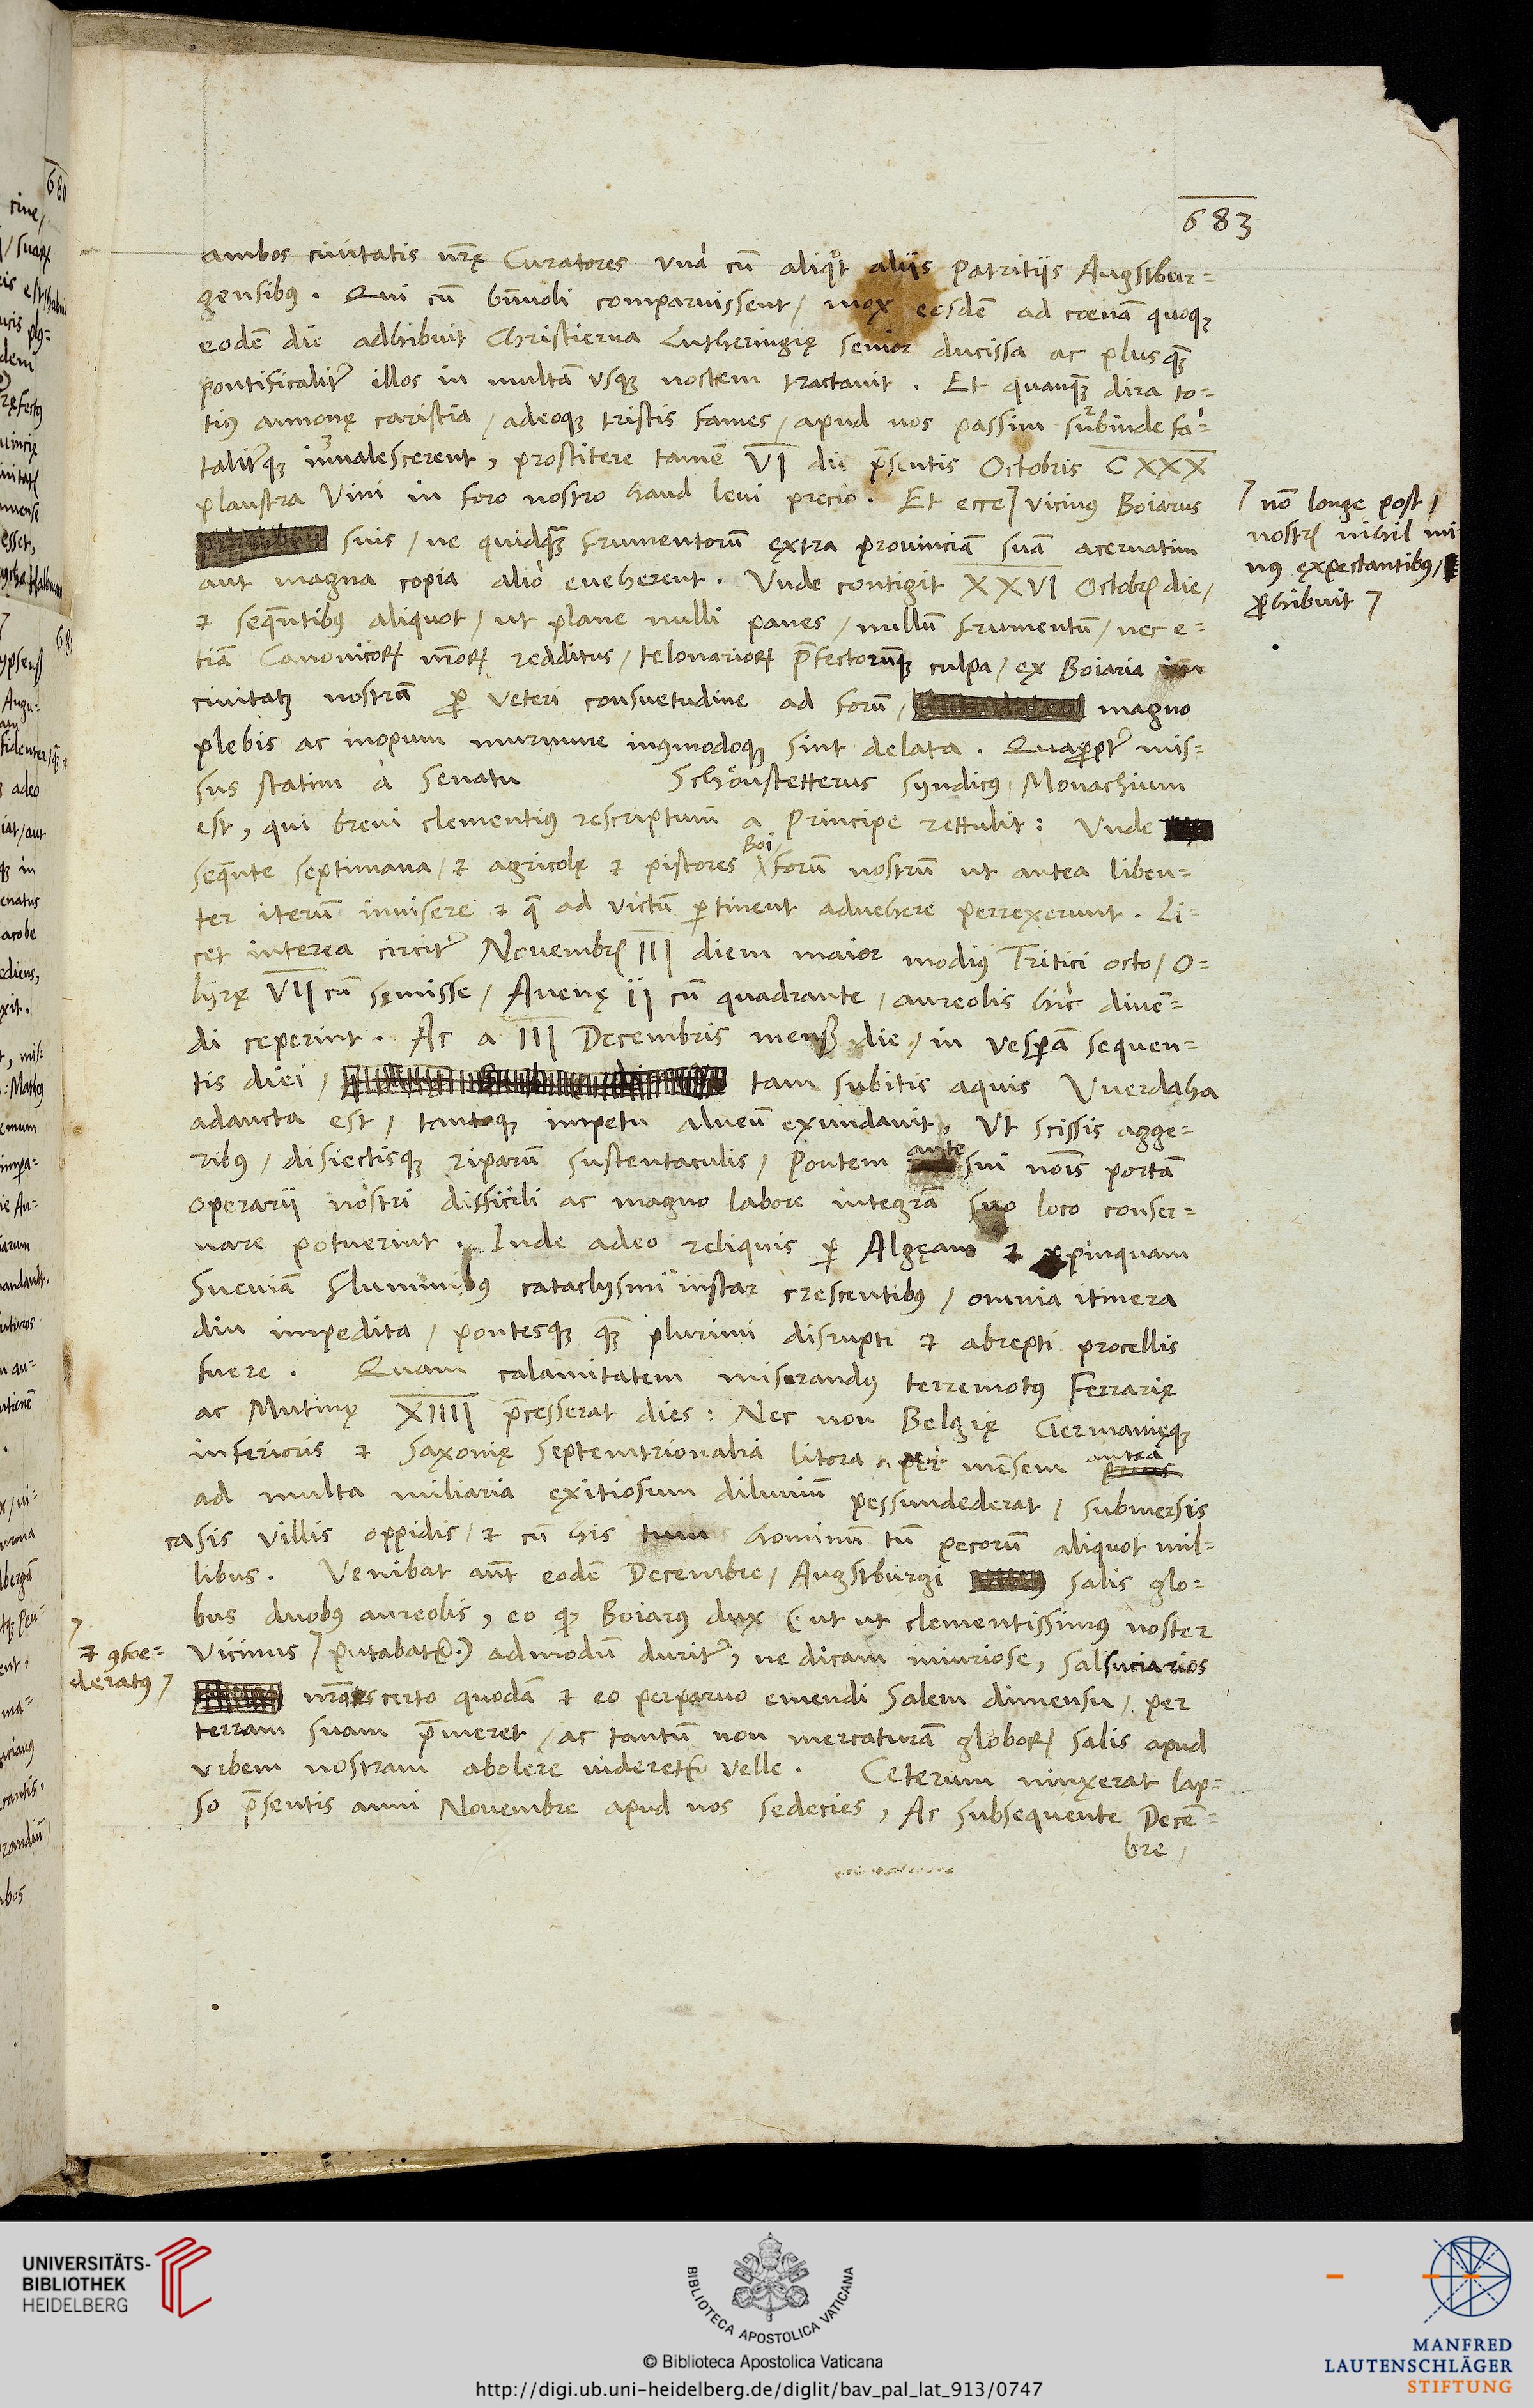 683
ambos ciuitatis nrę Curatores vnà cū aliqt aliis Patritijs Augstbur-
gensibꝰ. Qui cū bnuoli comparuissent / mox eosdē ad cœnā quoqꝫ
eodē die adhibuit Christierna Lutheringię senior ducissa ac plus qꝫ
pontificaliť illos in multā vsqꝫ noctem tractauit. Et quanqꝫ dira to-
tiꝰ annonę caristia / adeoqꝫ tristis fames / apud nos passim subinde fa-
taliťqꝫ inualescerent, prostitere tamē VI die p̄sentis Octobris CXXX
plaustra Vini in foro nostro haud leui precio. Et ecce ⁊ vicinꝰ Boiarus
suis / ne quidqꝫ frumentorū ęxtra prouinciā suā aceruatim
aut magna copia aliò eueherent. Vnde contigit XXVI Octobrꝭ die /
⁊ seqūtibꝰ aliquot / ut plane nulli panes / nullū frumentū / nec e-
tiā Canonicorꝝ nrorꝝ redditus / telonariorꝝ p̄fectorūqꝫ culpa / ex Boiaria in
ciuitatꝫ nostrā ꝑ veteri consuetudine ad forū / magno
plebis ac inopum murmure inꝰmodoqꝫ sint delata. Quaꝓpť mis-
sus statim à Senatu Schönstetterus syndicꝰ / Monachium
est, qui breui clementiꝰ rescriptum a Principe rettulit: Vnde
seqūte septimana / ⁊ agricolę ⁊ pistores Boi forū nostrū ut antea liben-
ter iterū inuisere ⁊ q̄ ad victū ꝑtinent aduehere perrexerunt. Li-
cet interea circiť Novembrꝭ III diem maior modiꝰ Tritici octo / O-
lyrę VII cū sęmisse / Auenę ii cū quadrante / aureolis hìc diuen-
di ceperint. Ac a III Decembris mensꝭ die / in vesꝑā sequen-
tis diei / tam subitis aquis Vuerdaha
adaucta est / tantoqꝫ impetu alueū exundauit, Vt scissis agge-
ribꝰ / disiectisqꝫ riparū sustentaculis / Pontem ante sui nois portā
operarii nostri difficili ac magno labore integrā suo loco conser-
uare potuerint. Inde adeo reliquis ꝑ Algęam ⁊ ꝓpinquam
Sueuiā fluminibꝰ cataclysmi instar crescentibꝰ / omnia itinera
diu impedita / pontesqꝫ qꝫ plurimi disrupti ⁊ abrepti procellis
fuere. Quam calamitatem miserandꝰ terremotꝰ Ferrarię
ac Mutinę XIIII p̄cesserat dies: Nec non Belgię Germanięqꝫ
inferioris ⁊ Saxonię septemtrionalia litora per mēsem antea prius
ad multa miliaria ęxitiosum diluuiū pessundederat / submersis
casis villis oppidis / ⁊ cū his tum hominū tū pecorū aliquot mil-
libus. Venibat aūt eodē Decembre / Augstburgi salis glo-
bus duobꝰ aureolis, eo qꝫ Boiarꝰ dux (ut ut clementissimꝰ noster
Vicinus ⁊ putabatꝰ) admodū duriť, ne dicam iniuriose, salsuciarios
nros certo quodā ⁊ eo perparuo emendi salem dimensu / per
terram suam p̄meret / ac tantū non mercaturā globorꝝ salis apud
vrbem nostram abolere videretꝰ velle. Ceterum ninxerat lap-
so p̄sentis anni Novembre apud nos sedecies, Ac subsequente Decē-
bre /
⁊ non longe post /
nostrꝭ nihil mi-
nus ęxpectantibus /
ꝓhibuit ⁊
⁊ ꝯfoe-
deratus ⁊
UNIVERSITÄTS-
BIBLIOTHEK
HEIDELBERG
BIBLIOTECA APOSTOLICA VATICANA
© Biblioteca Apostolica Vaticana
http://digi.ub.uni-heidelberg.de/diglit/bav_pal_lat_913/0747
MANFRED
LAUTENSCHLÄGER
STIFTUNG